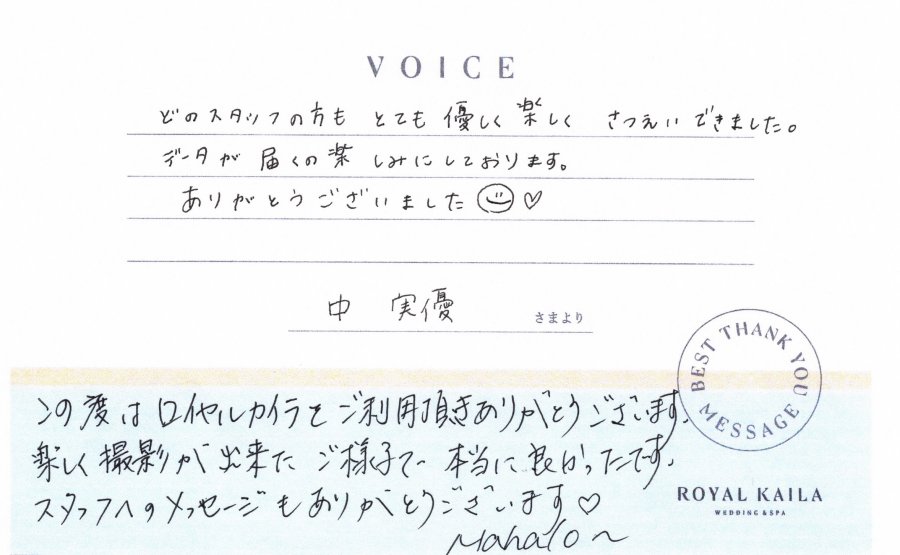 VOICE
どのスタッフの方も とても 優しく 楽しく さつえいできました。
データが 届くの楽しみにしております。
ありがとうございました☺♡
中 実優 さまより
BEST THANK YOU MESSAGE
この度はロイヤルカイラをご利用頂きありがとうございます。
楽しく撮影が出来たご様子で 本当に良かったです。
スタッフへのメッセージもありがとうございます♡
Mahalo~
ROYAL KAILA
WEDDING & SPA